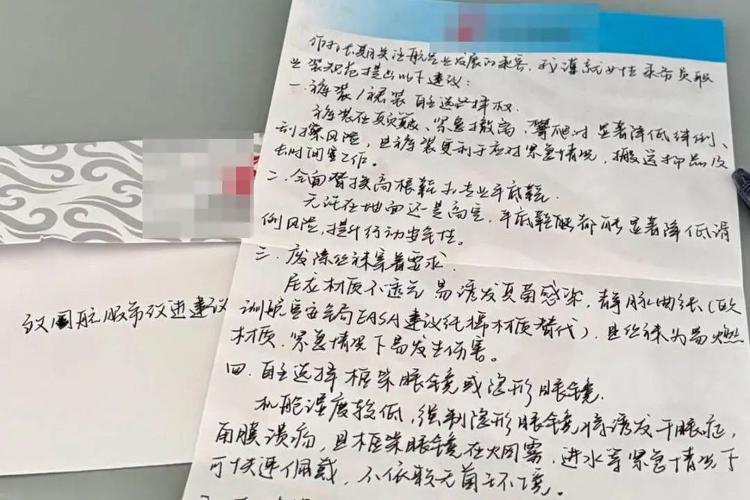 作为长期关注航空业发展的乘客，我谨就女性乘务员职
业装规范提出以下建议：
一.裤装/裙装自主选择权
裤装在颠簸、紧急撤离，攀爬时显著降低绊倒、
刮擦风险，且裤装更利于应对紧急情况，搬运物品及
长时间客工作。
二.全面替换高根鞋为专业平底鞋
无论在地面还是高空，平底鞋都能显著降低滑
倒风险，提升行动安全性。
三.废除丝袜穿着要求.
尼龙材质不透气易诱发真菌感染，静脉曲张（欧
洲航空安全局EASA建议纯棉材质替代），且丝袜为易燃
材质，紧急情况下易发生伤害。
四.自主选择框架眼镜或隐形眼镜.
机舱湿度较低，强制隐形眼镜将诱发干眼症，
角膜溃疡，且框架眼镜在火烟雾，进水等紧急情况下
可快速佩戴，不依赖无菌环境。
致国航服务改进建议